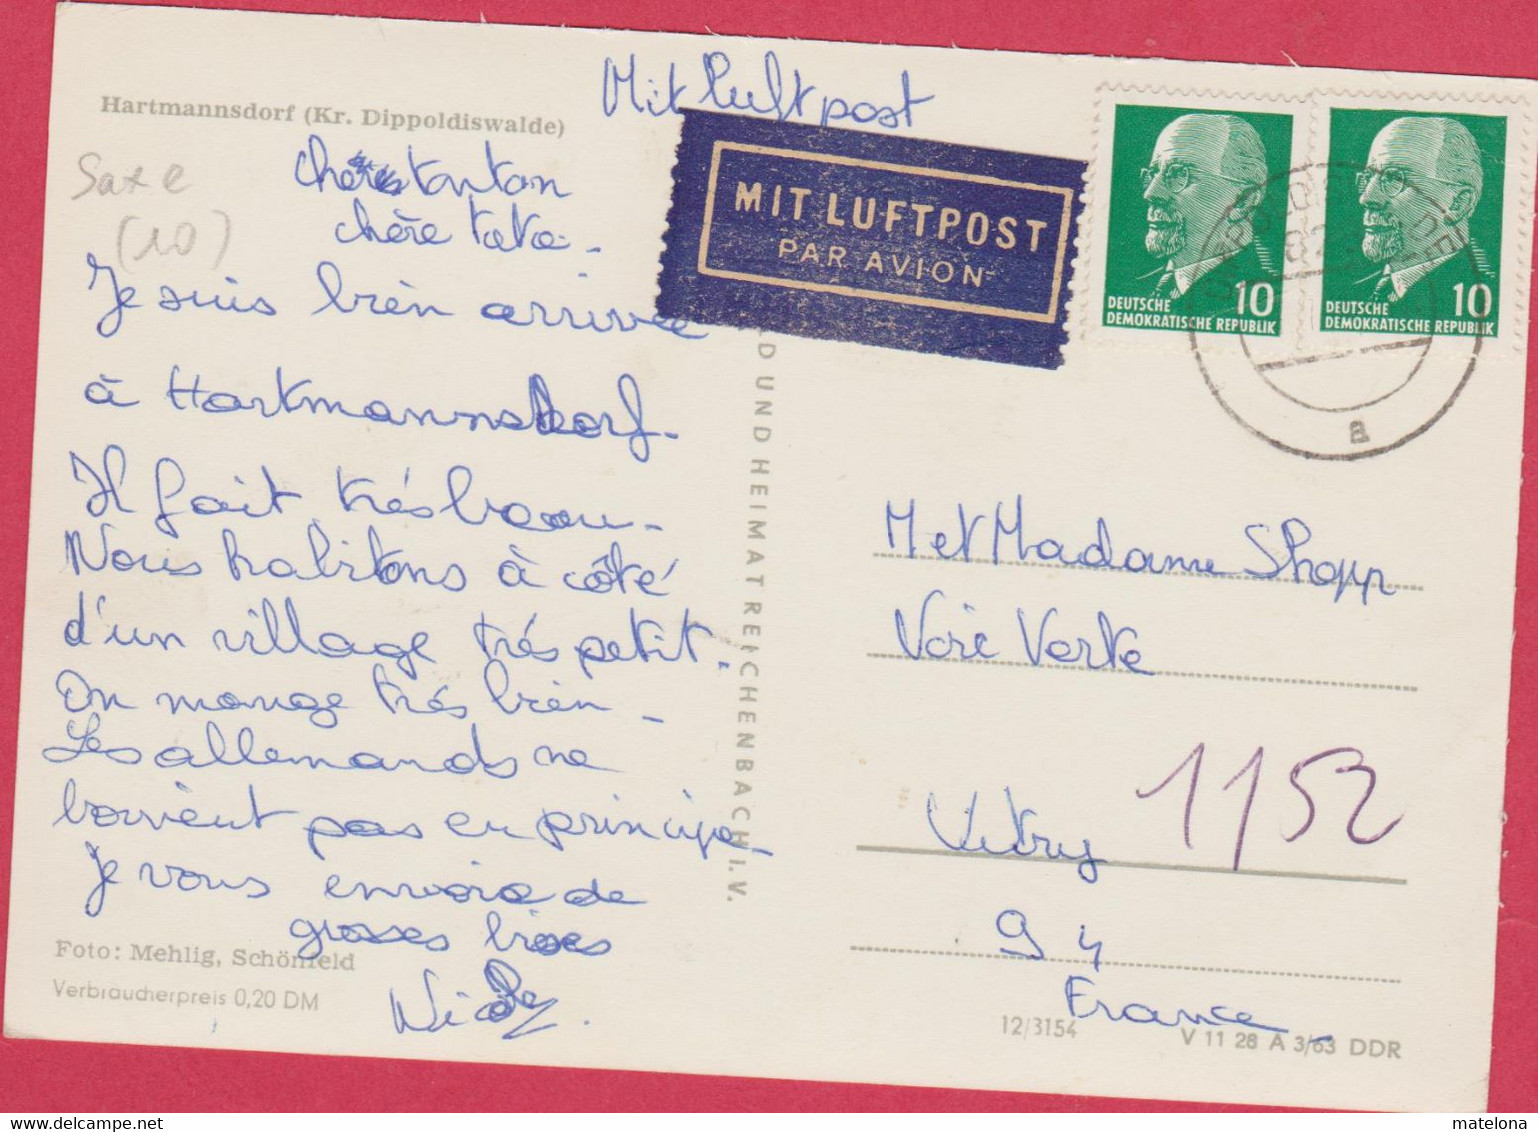 Hartmannsdorf (Kr. Dippoldiswalde)
Mit Luftpost
Saxe
(10)
chère tonton
chère tata -
Je suis bien arrivée
à Hartmannsdorf.
Il fait très beau -
Nous habitons à côté
d'un village très petit.
On mange très bien -
Les allemands ne
boivent pas en principe -
Je vous envoie de
grosses bises
Foto: Mehlig, Schönfeld
Verbraucherpreis 0,20 DM
MIT LUFTPOST
PAR AVION
D UND HEIMAT REICHENBACH I. V.
DEUTSCHE
DEMOKRATISCHE REPUBLIK
10
DEUTSCHE
DEMOKRATISCHE REPUBLIK
10
a
M et Madame Shopp
Voie Verte
Vitry 1152
94
France -
12/3154
V 11 28 A 3/63 DDR
matelona